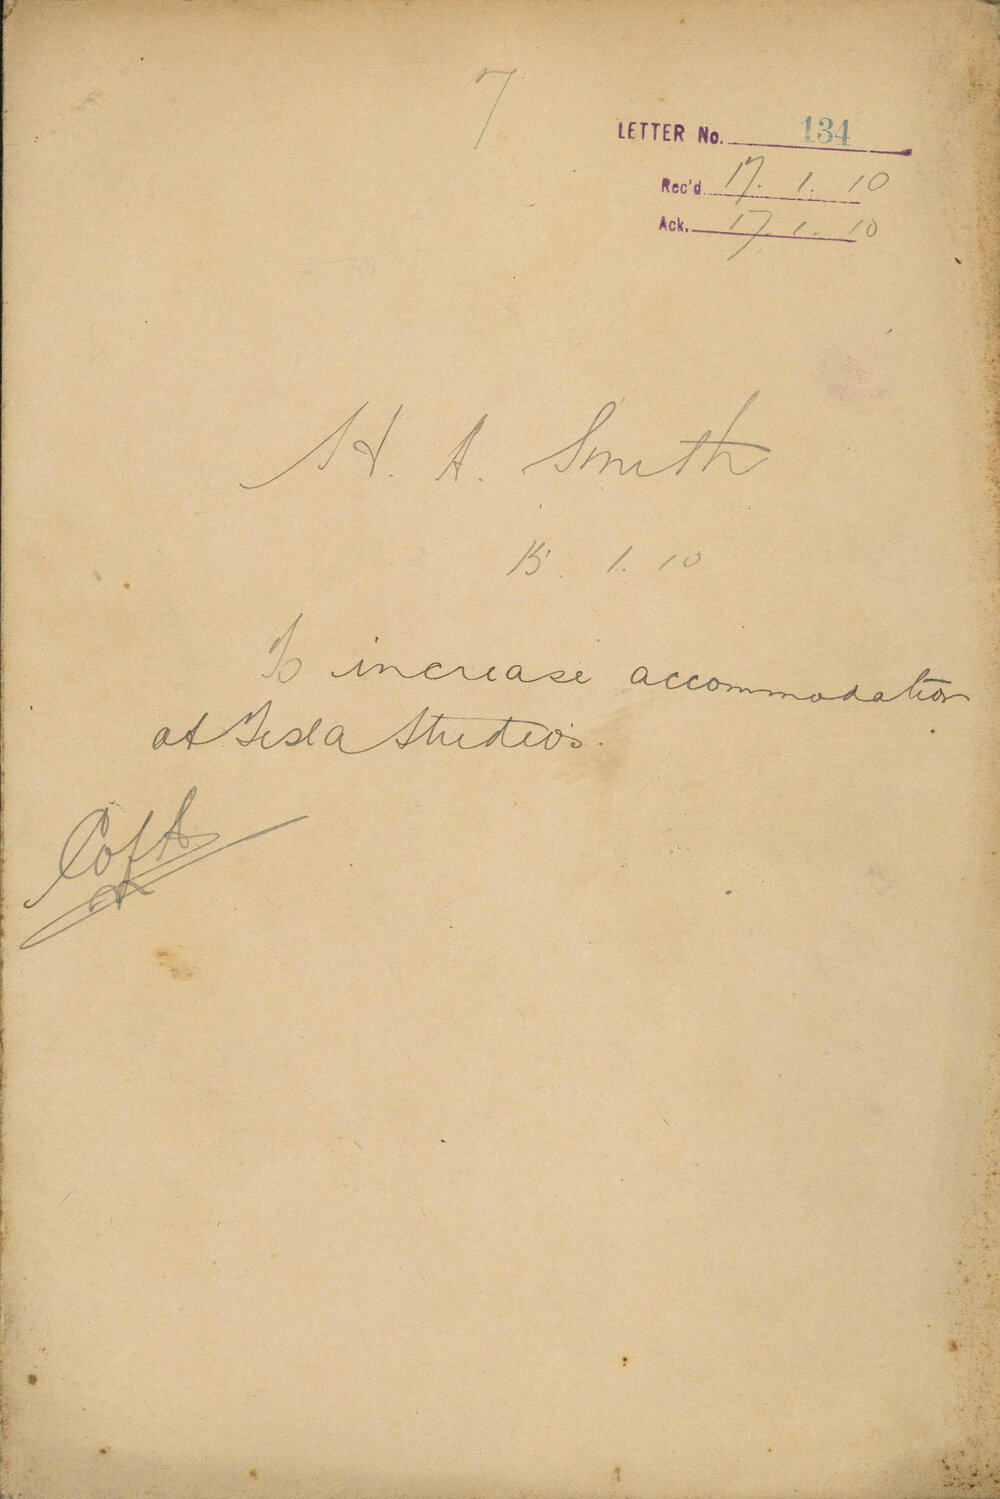 7
LETTER No. 134
Rec'd 17. 1. 10
Ack. 17. 1. 10
H. A. Smith
15. 1. 10
To increase accommodation
at Tesla Studios.